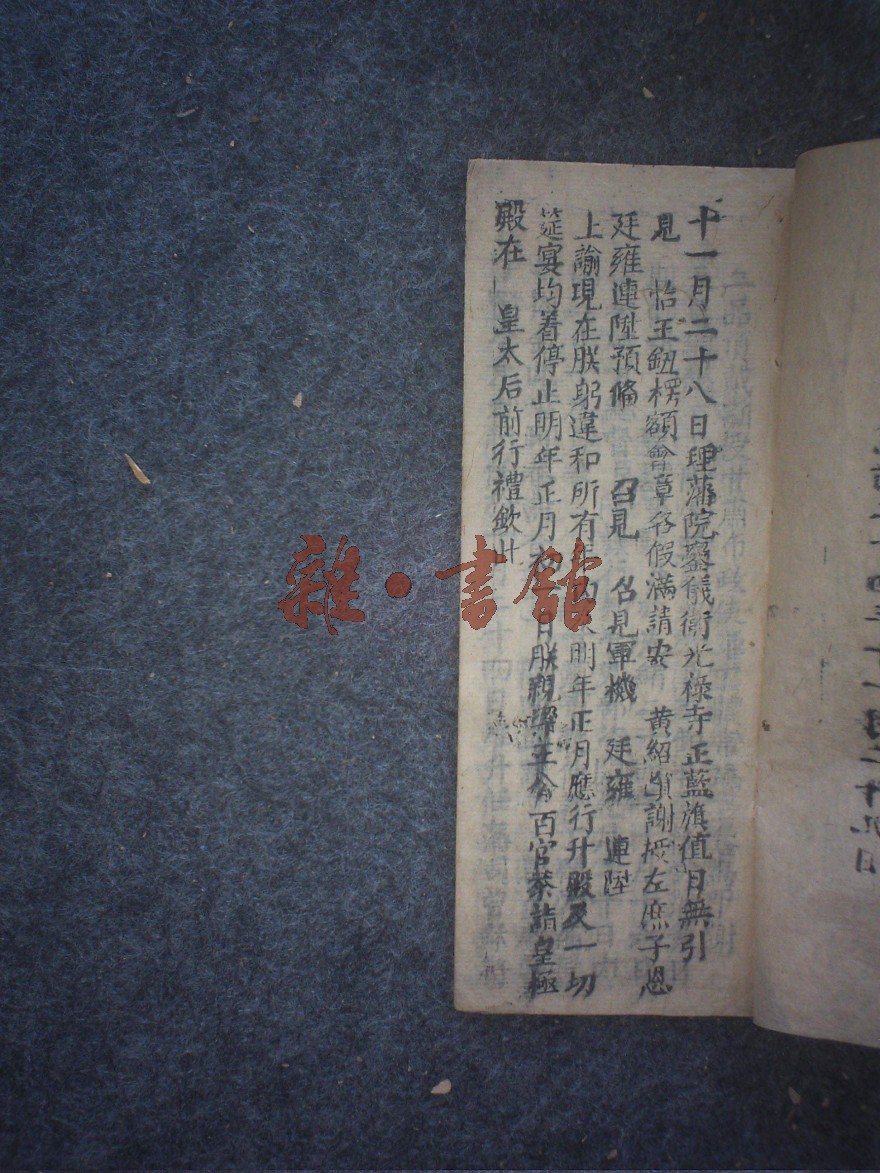 十一月二十八日理藩院鑾儀衛光祿寺正藍旗值日無引
見 怡王鈕楞額會章各假滿請安 黃紹 謝授左庶子恩
廷雍連陞預備 召見 召見軍機 廷雍 連陞
上諭現在朕躬違和所有年 明年正月應行升殿及一切
筵宴均着停止明年正月初 日朕親率王公百官恭詣皇極
殿在 皇太后前行禮欽此
雜·書館
二十四年十一月二十八日